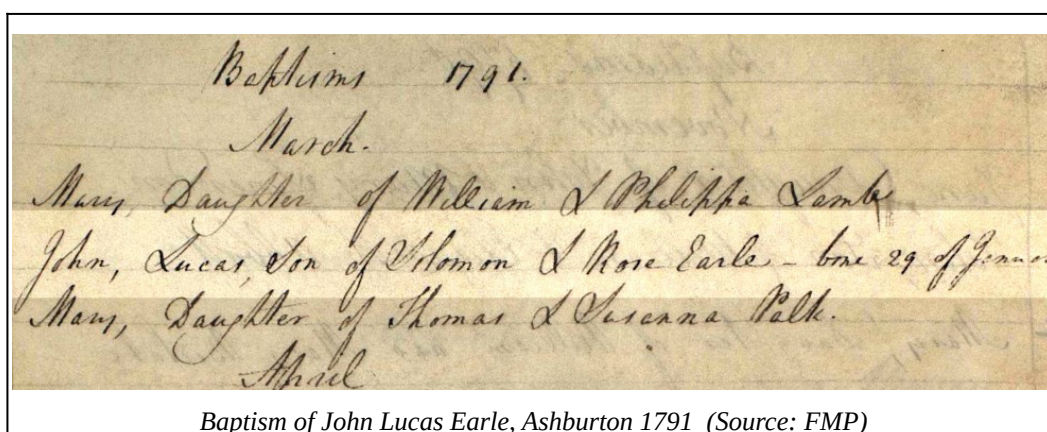 Baptisms 1791.
March.
Mary, Daughter of William & Philippa Lamb
John, Lucas, Son of Solomon & Rose Earle - bone 29 of Janua
Mary, Daughter of Thomas & Susanna Palk.
April
Baptism of John Lucas Earle, Ashburton 1791 (Source: FMP)